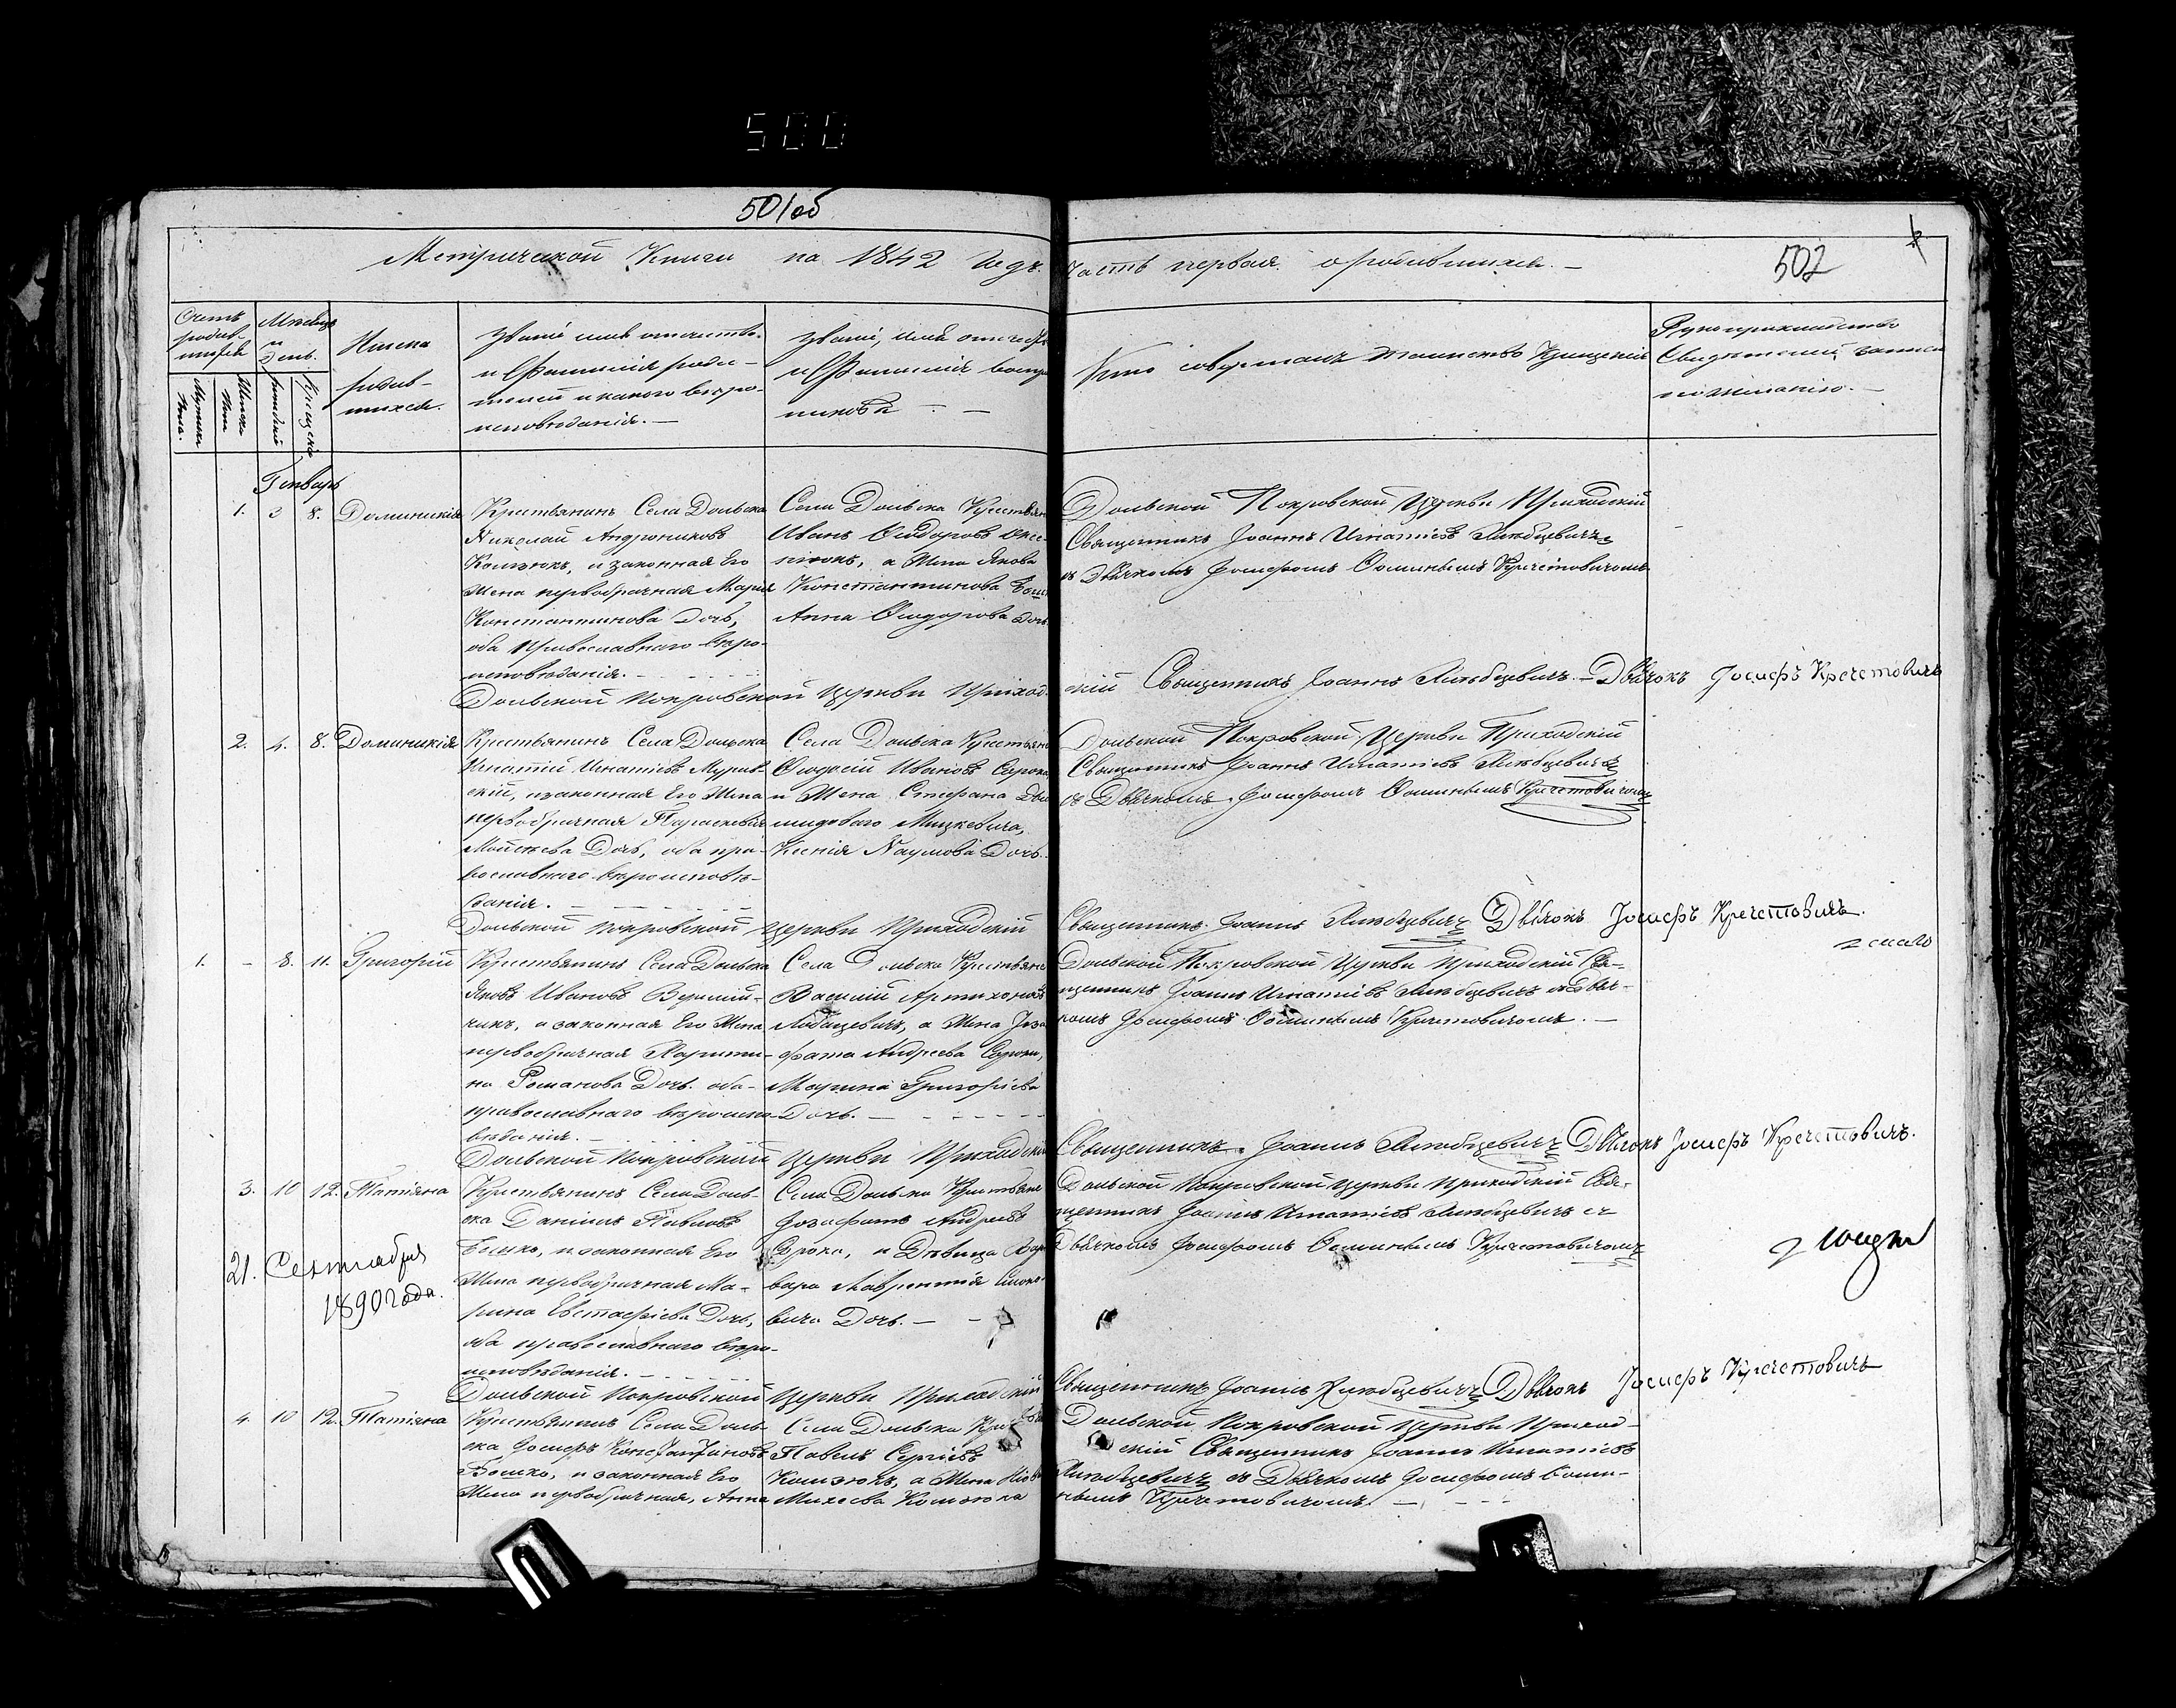 500
501об
502
Метрической Книги на 1842 годъ. Часть первая о родившихся. —
Счетъ родив-
шихся
Мужеска
Пола.
Женска
Пола
Мѣсяцъ
и
День.
рожденія
Крещенія
Имена
родив-
шихся.
Званіе имя отчество
и Фамилія роди-
телей и какого вѣро-
исповѣданія. —
Званіе, имя отчество
и Фамилія воспріе
никовъ —
Кто совершалъ таинство Крещенія
Рукоприкладство
Свидѣтелей записи
по желанію. —
Генварь
1. 3 8. Доминикія
Крестьянинъ Села Дольска
Николай Андрониковъ
и законная Его
Жена первобрачная Марія
Константинова Дочь,
оба православнаго вѣро-
исповѣданія. —
Села Дольска Крестьян
Иванъ Ѳиодоровъ
а Жена Якова
Константинова
Анна Ѳиодорова Дочь
Дольской Покровской Церкви Приходскій
Священникъ Іоаннъ Игнатіевъ Линбцевичъ
съ Дьячкомъ Іосифомъ Ѳоминымъ Кречетовичомъ
Дольской Покровской Церкви Приход-
скій Священникъ Іоаннъ Линбцевичъ. — Дьячокъ Іосифъ Кречетовичъ
2. 4. 8. Доминикія
Крестьянинъ Села Дольска
Игнатій Игнатіевъ
скій, и законная Его Жена
первобрачная Параскевія
Мойсеева Дочь, оба пра-
вославнаго вѣроисповѣ-
данія. —
Села Дольска Крестьян
Ѳиодосій Ивановъ Сорока
и Жена Стефана
Мицкевича,
Ксенія Наумова Дочь.
Дольской Покровской Церкви Приходскій
Священникъ Іоаннъ Игнатіевъ Линбцевичъ
съ Дьячкомъ Іосифомъ Ѳоминымъ Кречетовичомъ
Дольской Покровской Церкви Приходскій
Священникъ Іоаннъ Линбцевичъ Дьячокъ Іосифъ Кречетовичъ.
1. — 8. 11. Григорій
Крестьянинъ Села Дольска
Яковъ Ивановъ
чикъ, и законная Его Жена
первобрачная Харити-
на Романова Дочь оба
православнаго вѣроиспо-
вѣданія. —
Села Дольска Крестьяне
Василій
а Жена Іоза
фата Андреева Сороки,
Марина Григоріева
Дочь. —
Дольской Покровской Церкви Приходскій Свя-
щенникъ Іоаннъ Игнатіевъ Линбцевичъ съ Дьяч-
комъ Іосифомъ Ѳоминымъ Кречетовичомъ. —
Дольской Покровской Церкви Приходскій
Священникъ. Іоаннъ Линбцевичъ Дьячокъ Іосифъ Кречетовичъ.
3. 10 12. Татіяна
21. Сентября
1890 года.
Крестьянинъ Села Доль-
ска Даніилъ Павловъ
Бошко, и законная Его
Жена первобрачная Ма-
рина Евстафіева Дочь,
оба православнаго вѣро-
исповѣданія. —
Села Дольска Крестьяне
Іозафатъ Андреевъ
Сорока, и Дѣвица Вар
вара Лаврентія
вича Дочь. —
Дольской Покровской Церкви Приходскій Свя-
щенникъ Іоаннъ Игнатіевъ Линбцевичъ съ
Дьячкомъ Іосифомъ Ѳоминымъ Кречетовичомъ
Дольской Покровской Церкви Приходскій
Священникъ Іоаннъ Линбцевичъ Дьячокъ Іосифъ Кречетовичъ
4. 10 12. Татіяна
Крестьянинъ Села Доль-
ска Іосифъ Константиновъ
Бошко, и законная Его
Жена первобрачная, Анна
Села Дольска Крес
Павелъ Сергіевъ
а Жена
Михеева
Дольской Покровской Церкви Приход-
скій Священникъ Іоаннъ Игнатіевъ
Линбцевичъ съ Дьячкомъ Іосифомъ Ѳоми-
нымъ Кречетовичомъ. —